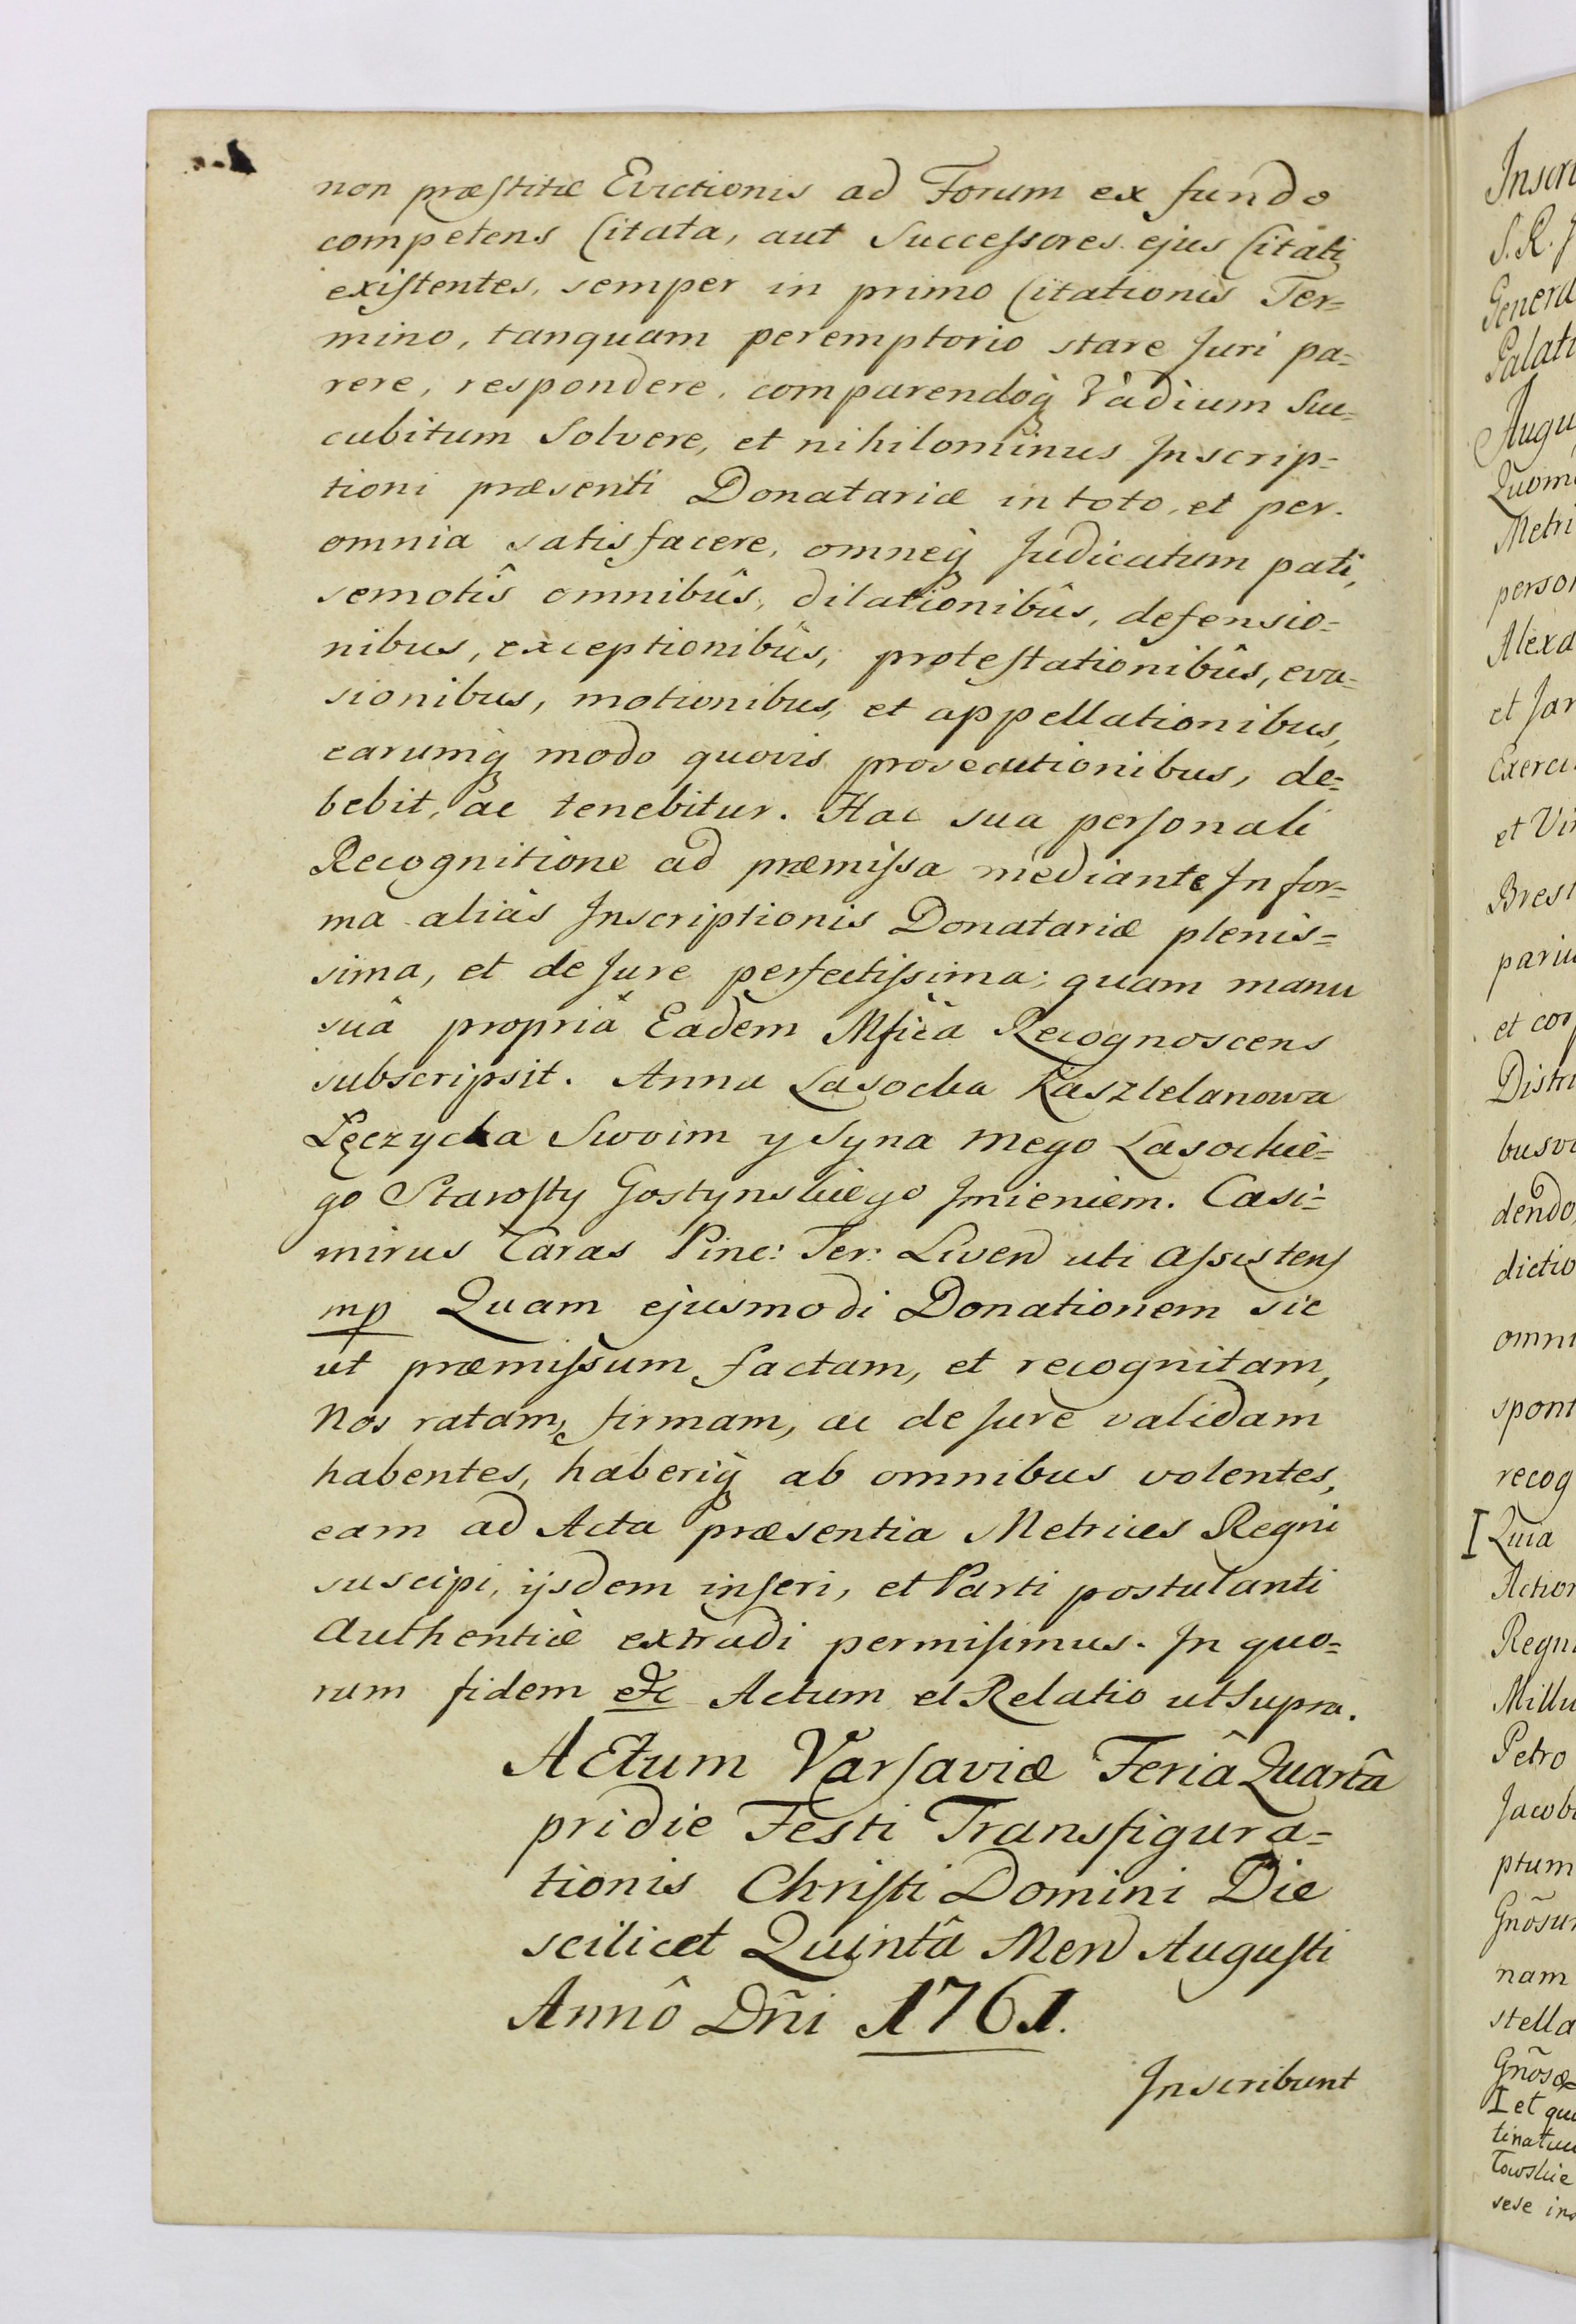 non præstitæ Evictionis ad Forum ex fundo
competens Citata, aut Successores ejus Citati
existentes, semper in primo Citationis Ter=
mino, tanquam peremptorio stare Juri pa=
rere, respondere, comparendoq; Vadium Suc=
cubitum Solvere, et nihilominus Inscrip=
tioni præsenti Donatariæ in toto, et per
omnia satisfacere, omneq; Judicatum pati,
semotîs omnibûs, dilationibûs, defensio=
nibus, exceptionibûs, protestationibûs, eva=
sionibus, motionibus, et appellationibus,
earumq; modo quovis prosecutionibus, de=
bebit, ac tenebitur. Hac sua personali
Recognitione ad præmissa mediante In for=
ma aliàs Inscriptionis Donatariæ plenis=
sima, et de Jure perfectissima; quam manu
suâ propriâ Eadem Mfica Recognoscens
subscripsit. Anna Lasocka Kasztelanowa
Łęczycka Swoim y Syna mego Lasockie=
go Starosty Gostynskiego Jmieniem. Casi=
mirus Taras Pinc: Ter: Livend uti Assistens
mp Quam ejusmodi Donationem sic
ut præmissum factam, et recognitam,
Nos ratam, firmam, ac de Jure validam
habentes, haberiq; ab omnibus volentes,
eam ad Acta præsentia Metrices Regni
suscipi, ijsdem inseri, et Parti postulanti
Authenticè extradi permisimus. In quo=
rum fidem etc Actum et Relatio ut Supra.
Actum Varsaviæ Feriâ Quartâ
pridie Festi Transfigura=
tionis Christi Domini Die
scilicet Quintâ Mens Augusti
Annô Dñi 1761.
Inscribunt
S. R.
Augu
Quom
Metri
person
Alexa
et Jar
Exerci
et Vir
Brest
et cor
Distri
dendo,
dictio
omni
spont
recog
Quia
Action
Regni
Petro
ptum
nam
stella
I et qu
sese in